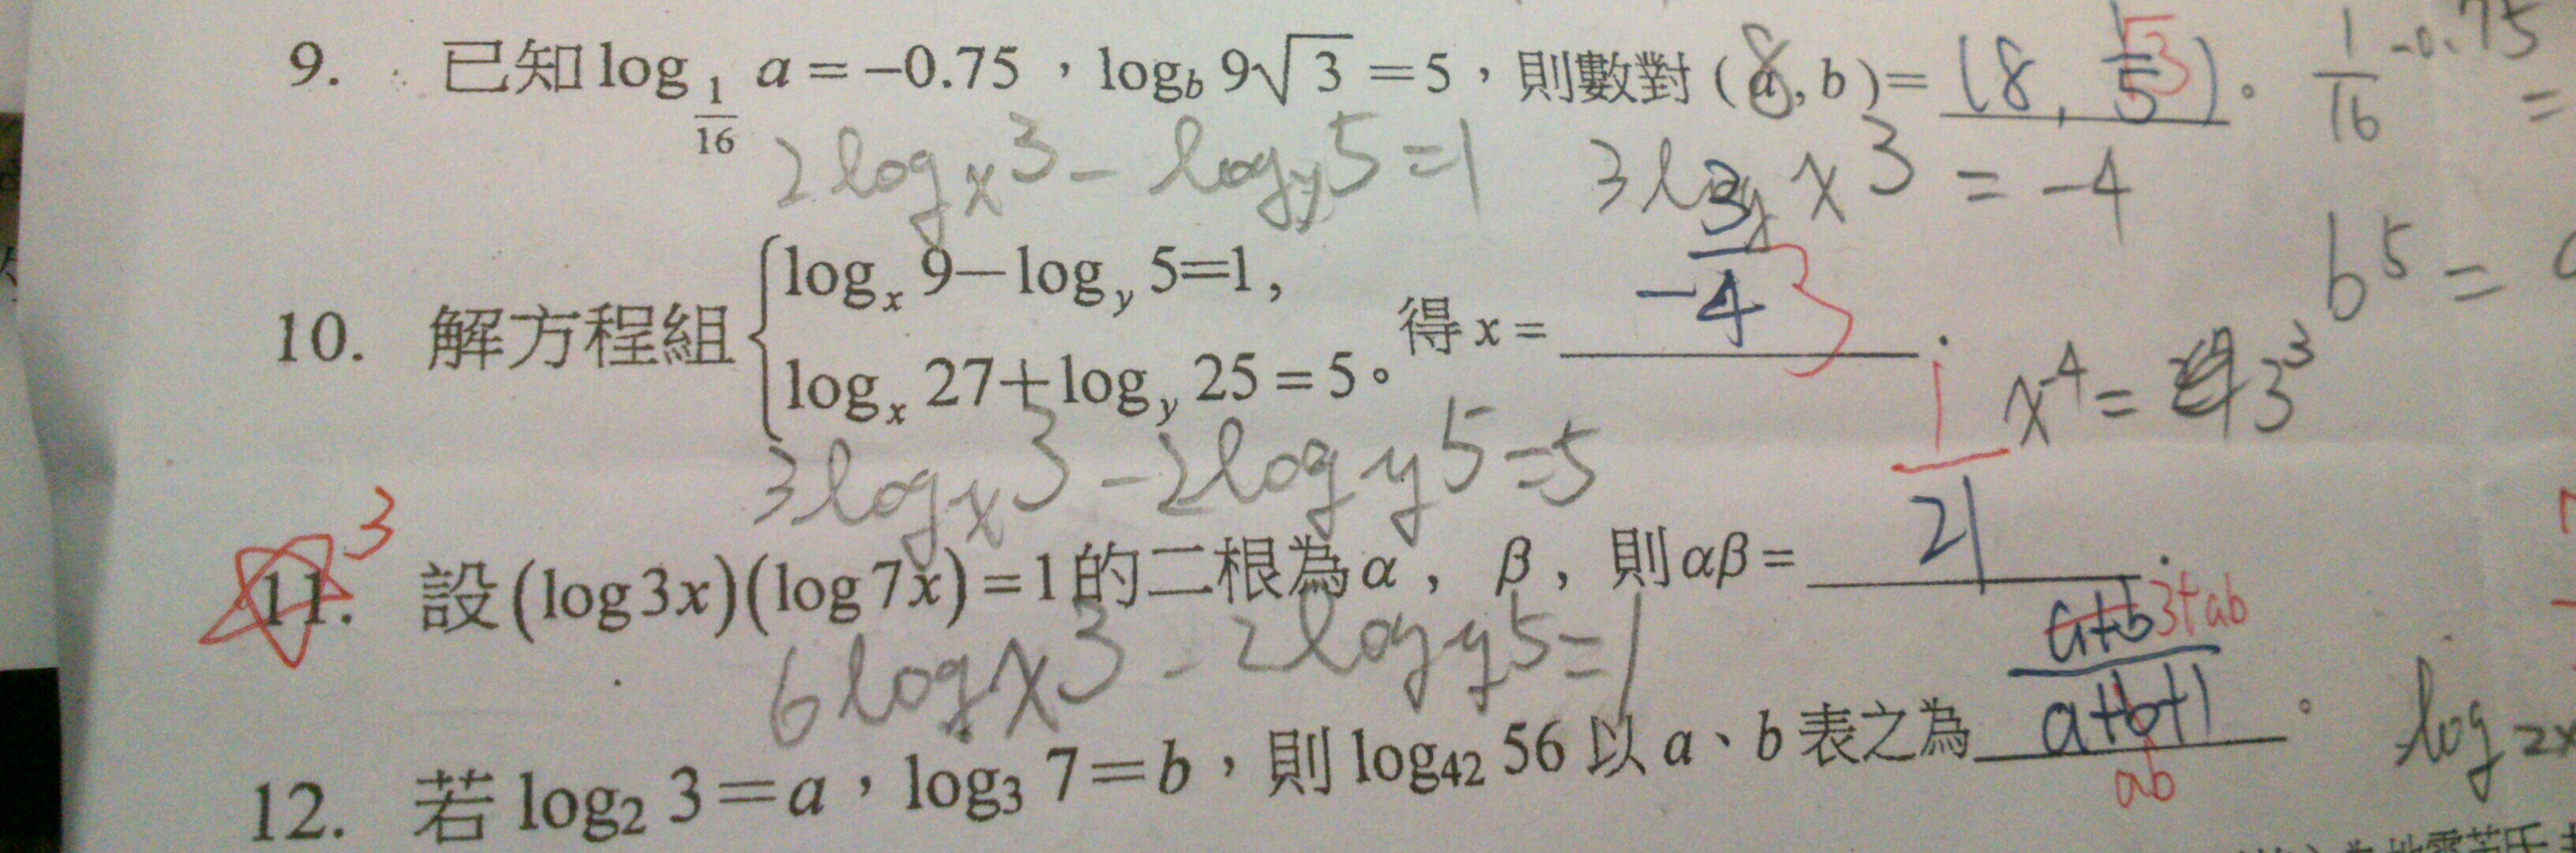 9. 已知 log 1/16 a = −0.75，log_b 9√3 = 5，則數對 (a, b) = (8, 1/5)。 √3
8
1/16 -0.75 =
2log x 3 − log y 5 = 1
3 log x 3 = −4
b⁵ =
10. 解方程組 { log_x 9 − log_y 5 = 1, log_x 27 + log_y 25 = 5。 得 x = 3/−4 . 3
x⁻⁴ = 3³
3log x 3 − 2log y 5 = 5
3
11. 設 (log 3x)(log 7x) = 1 的二根為 α , β , 則 αβ = 1/21 .
6 log x 3 − 2log y 5 = 1
12. 若 log₂ 3 = a，log₃ 7 = b，則 log₄₂ 56 以 a、b 表之為 a+b/a+b+1 。 3+ab ab
log 2x